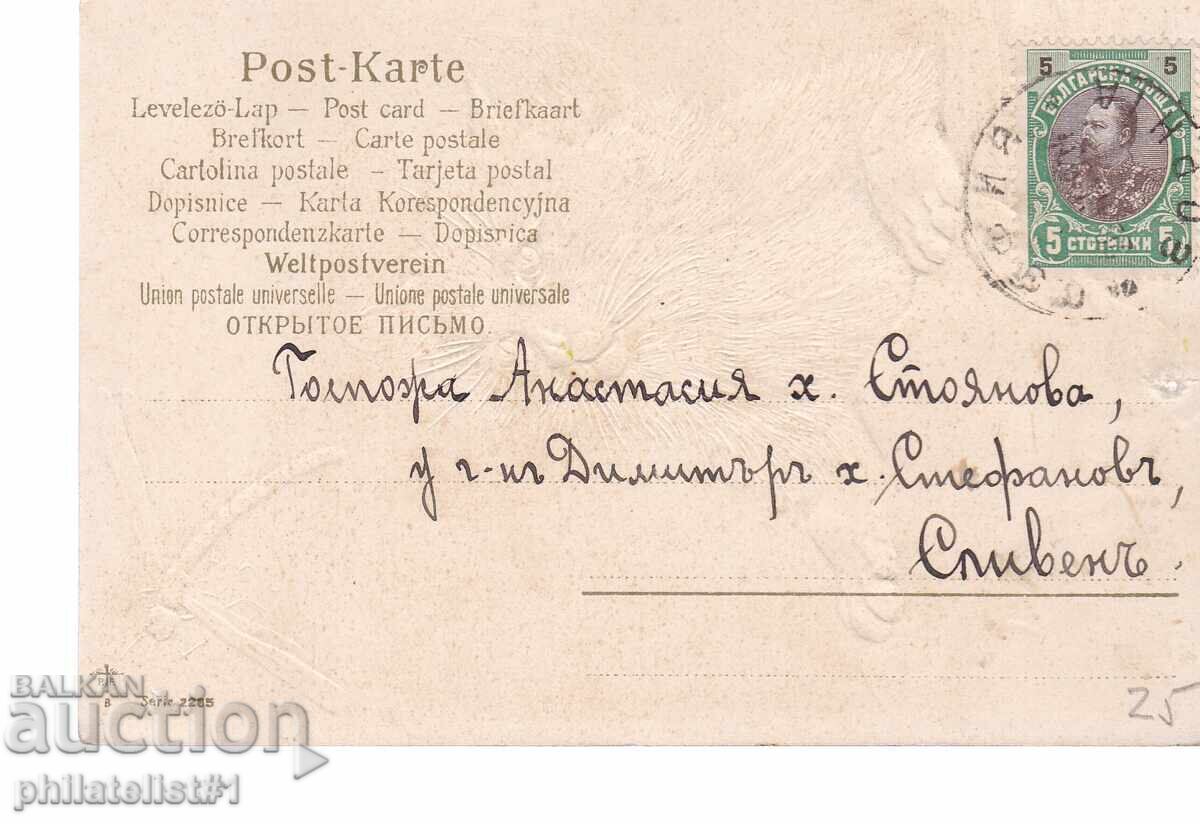 Post-Karte
Levelező-Lap — Post card — Briefkaart
Brefkort — Carte postale
Cartolina postale – Tarjeta postal
Dopisnice – Karta Korespondencyjna
Correspondenzkarte – Dopisnica
Weltpostverein
Union postale universelle — Unione postale universale
ОТКРЫТОЕ ПИСЬМО.
5 5
БЪЛГАРСКА ПОЩА
5 СТОТИНКИ 5
СОФИЯ
Госпожа Анастасия х. Стоянова,
у г-нъ Димитъръ х. Стефановъ,
Сливенъ.
B Serie 2265
25
BALKAN
auction
philatelist#1